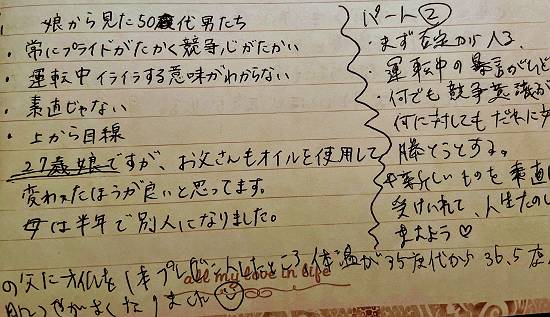 娘から見た50歳代男たち
・常にプライドがたかく競争心がたかい
・運転中イライラする意味がわからない
・素直じゃない
・上から目線
27歳娘ですが、お父さんもオイルを使用して
変わったほうが良いと思ってます。
母は半年で別人になりました。
パート②
・まず否定から入る、
・運転中の暴言がひど
・何でも競争意識が
何に対してもだれに対
勝とうとする。
新しいものを素直に
受けいれて、人生たのし
みましょう♡
の父にオイルを1本プレゼントしたところ、体温が35度代から36.5度
all my love in life
くなりました